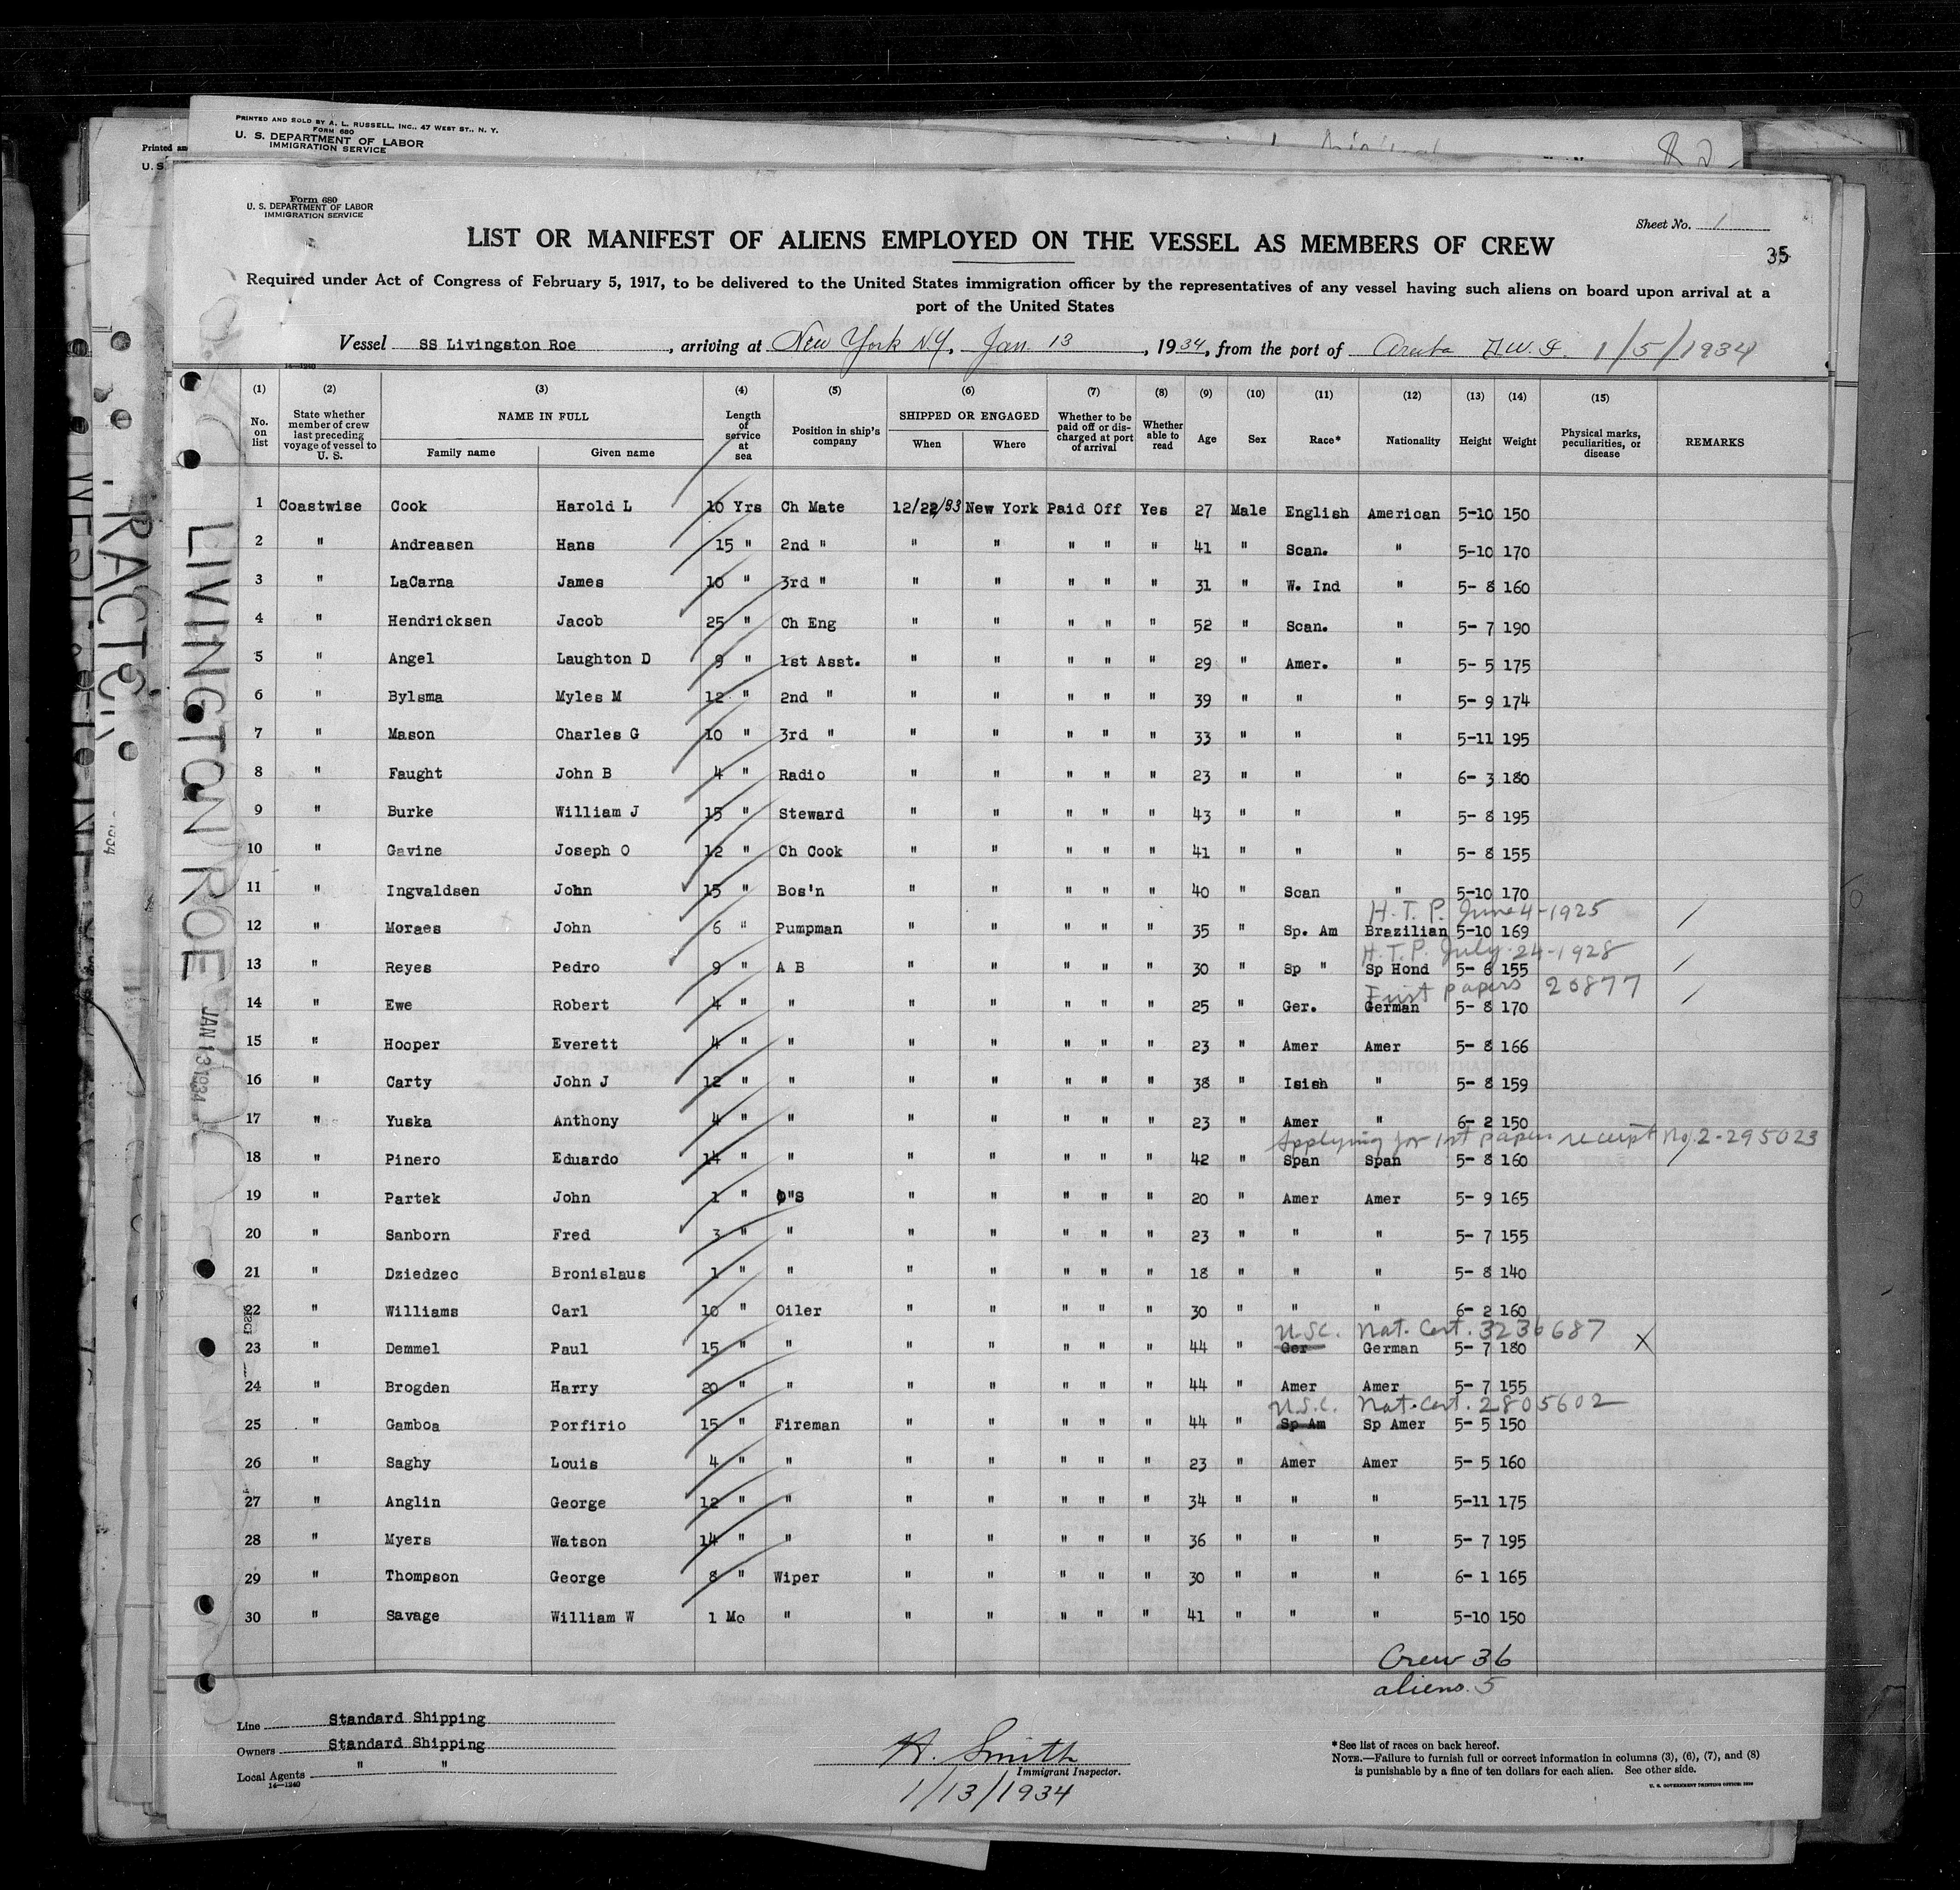 PRINTED AND SOLD BY A. L. RUSSELL, INC., 47 WEST ST., N. Y.
FORM 680
U. S. DEPARTMENT OF LABOR
IMMIGRATION SERVICE
Printed an
U. S.
Form 680
U. S. DEPARTMENT OF LABOR
IMMIGRATION SERVICE
Sheet No. 1
LIST OR MANIFEST OF ALIENS EMPLOYED ON THE VESSEL AS MEMBERS OF CREW
35
Required under Act of Congress of February 5, 1917, to be delivered to the United States immigration officer by the representatives of any vessel having such aliens on board upon arrival at a
port of the United States
Vessel SS Livingston Roe, arriving at New York NY, Jan. 13, 1934, from the port of Aruba D.W.I. 1/5/1934
14—1240
(1) (2) (3) (4) (5) (6) (7) (8) (9) (10) (11) (12) (13) (14) (15)
No. on list | State whether member of crew last preceding voyage of vessel to U. S. | NAME IN FULL Family name Given name | Length of service at sea | Position in ship's company | SHIPPED OR ENGAGED When Where | Whether to be paid off or discharged at port of arrival | Whether able to read | Age | Sex | Race* | Nationality | Height | Weight | Physical marks, peculiarities, or disease | REMARKS
1 Coastwise Cook Harold L 10 Yrs Ch Mate 12/22/33 New York Paid Off Yes 27 Male English American 5-10 150
2 " Andreasen Hans 15 " 2nd " " " " " " 41 " Scan. " 5-10 170
3 " LaCarna James 10 " 3rd " " " " " " 31 " W. Ind " 5- 8 160
4 " Hendricksen Jacob 25 " Ch Eng " " " " " 52 " Scan. " 5- 7 190
5 " Angel Laughton D 9 " 1st Asst. " " " " " 29 " Amer. " 5- 5 175
6 " Bylsma Myles M 12 " 2nd " " " " " " 39 " " " 5- 9 174
7 " Mason Charles G 10 " 3rd " " " " " " 33 " " " 5-11 195
8 " Faught John B 4 " Radio " " " " " 23 " " " 6- 3 180
9 " Burke William J 15 " Steward " " " " " 43 " " " 5- 8 195
10 " Gavine Joseph O 12 " Ch Cook " " " " " 41 " " " 5- 8 155
11 " Ingvaldsen John 15 " Bos'n " " " " " 40 " Scan " 5-10 170
H.T.P. June 4-1925
12 " Moraes John 6 " Pumpman " " " " " 35 " Sp. Am Brazilian 5-10 169 /
H.T.P. July-24-1928
13 " Reyes Pedro 9 " A B " " " " " 30 " Sp " Sp Hond 5- 6 155 /
First papers 20877
14 " Ewe Robert 4 " " " " " " " 25 " Ger. German 5- 8 170 /
15 " Hooper Everett 4 " " " " " " " 23 " Amer Amer 5- 8 166
16 " Carty John J 12 " " " " " " " 38 " Isish " 5- 8 159
17 " Yuska Anthony 4 " " " " " " " 23 " Amer " 6- 2 150
Applying for 1st papers receipt No. 2-295023
18 " Pinero Eduardo 14 " " " " " " " 42 " Span Span 5- 8 160 /
19 " Partek John 1 " O"S " " " " " 20 " Amer Amer 5- 9 165
20 " Sanborn Fred 3 " " " " " " " 23 " " " 5- 7 155
21 " Dziedzec Bronislaus 1 " " " " " " " 18 " " " 5- 8 140
22 " Williams Carl 10 " Oiler " " " " " 30 " " " 6- 2 160
U.S.C. Nat. Cert. 3236687
23 " Demmel Paul 15 " " " " " " " 44 " Ger German 5- 7 180 X
24 " Brogden Harry 20 " " " " " " " 44 " Amer Amer 5- 7 155
U.S.C. Nat. Cert. 2805602
25 " Gamboa Porfirio 15 " Fireman " " " " " 44 " Sp Am Sp Amer 5- 5 150
26 " Saghy Louis 4 " " " " " " " 23 " Amer Amer 5- 5 160
27 " Anglin George 12 " " " " " " " 34 " " " 5-11 175
28 " Myers Watson 14 " " " " " " " 36 " " " 5- 7 195
29 " Thompson George 8 " Wiper " " " " " 30 " " " 6- 1 165
30 " Savage William W 1 Mo " " " " " " 41 " " " 5-10 150
Crew 36
aliens. 5
LIVINGTON ROE
JAN 13 1934
Line Standard Shipping
Owners Standard Shipping
Local Agents " "
14—1240
H. Smith
Immigrant Inspector.
1/13/1934
*See list of races on back hereof.
NOTE.—Failure to furnish full or correct information in columns (3), (6), (7), and (8)
is punishable by a fine of ten dollars for each alien. See other side.
U. S. GOVERNMENT PRINTING OFFICE